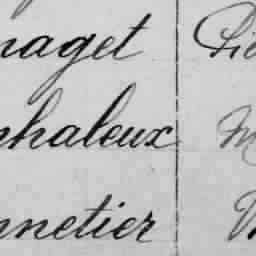 naget Pie
nhaleux M
nnetier